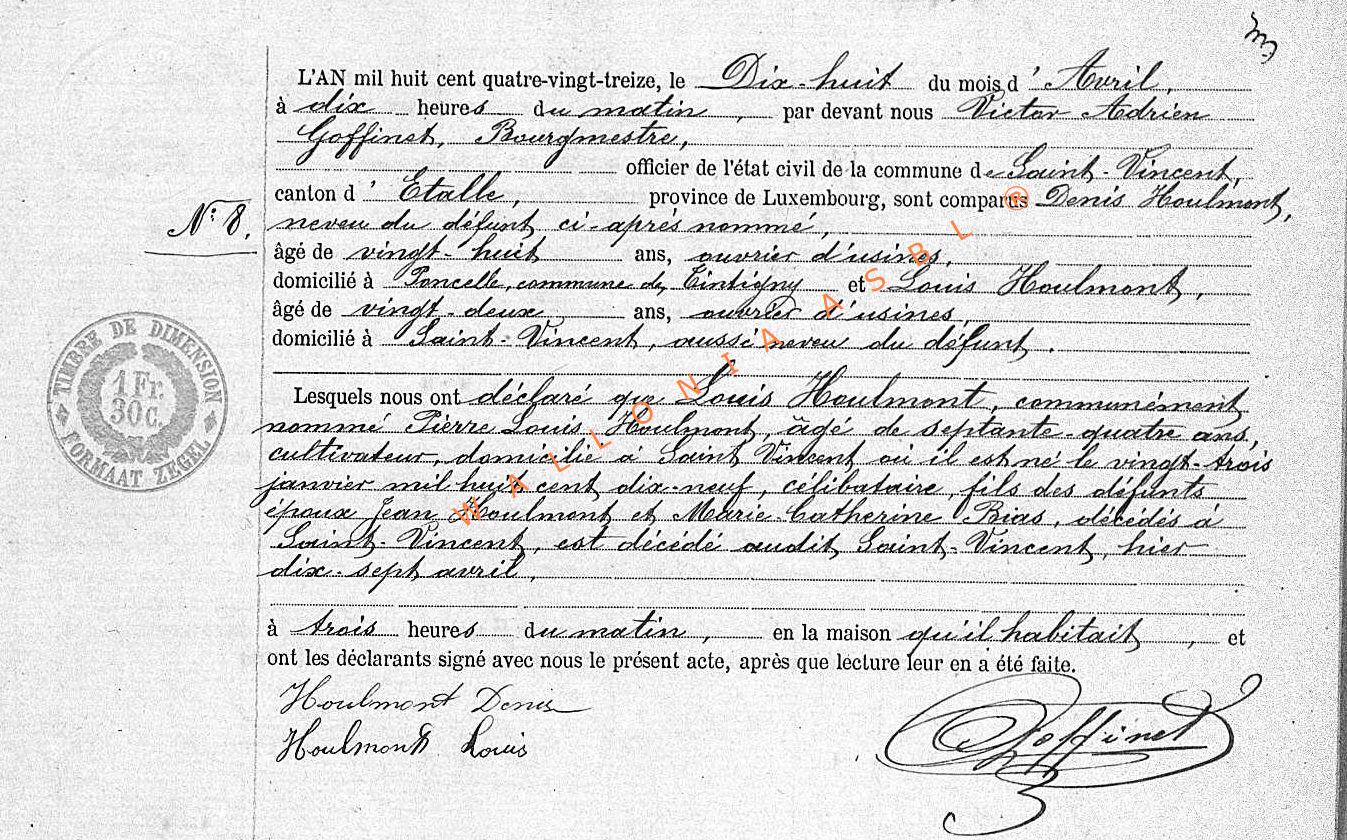 3
L'AN mil huit cent quatre-vingt-treize, le Dix-huit du mois d'Avril,
à dix heures du matin, par devant nous Victor Adrien
Goffinet, Bourgmestre,
officier de l'état civil de la commune de Saint-Vincent,
canton d'Etalle, province de Luxembourg, sont comparus Denis Houlmont,
N° 8.
neveu du défunt ci-après nommé,
âgé de vingt-huit ans, ouvrier d'usines,
domicilié à Poncelle, commune de Tintigny et Louis Houlmont,
âgé de vingt-deux ans, ouvrier d'usines,
domicilié à Saint-Vincent, aussi neveu du défunt.
TIMBRE DE DIMENSION
1 Fr.
30 c.
FORMAAT ZEGEL
Lesquels nous ont déclaré que Louis Houlmont, communément
nommé Pierre Louis Houlmont, âgé de septante-quatre ans,
cultivateur, domicilié à Saint Vincent où il est né le vingt-trois
janvier mil huit cent dix-neuf, célibataire, fils des défunts
époux Jean Houlmont et Marie-Catherine Bias, décédés à
Saint-Vincent, est décédé audit Saint-Vincent, hier
dix-sept avril,
à trois heures du matin, en la maison qu'il habitait, et
ont les déclarants signé avec nous le présent acte, après que lecture leur en a été faite.
Houlmont Denis
Houlmont Louis
Goffinet
WALLONIA ASBL ®